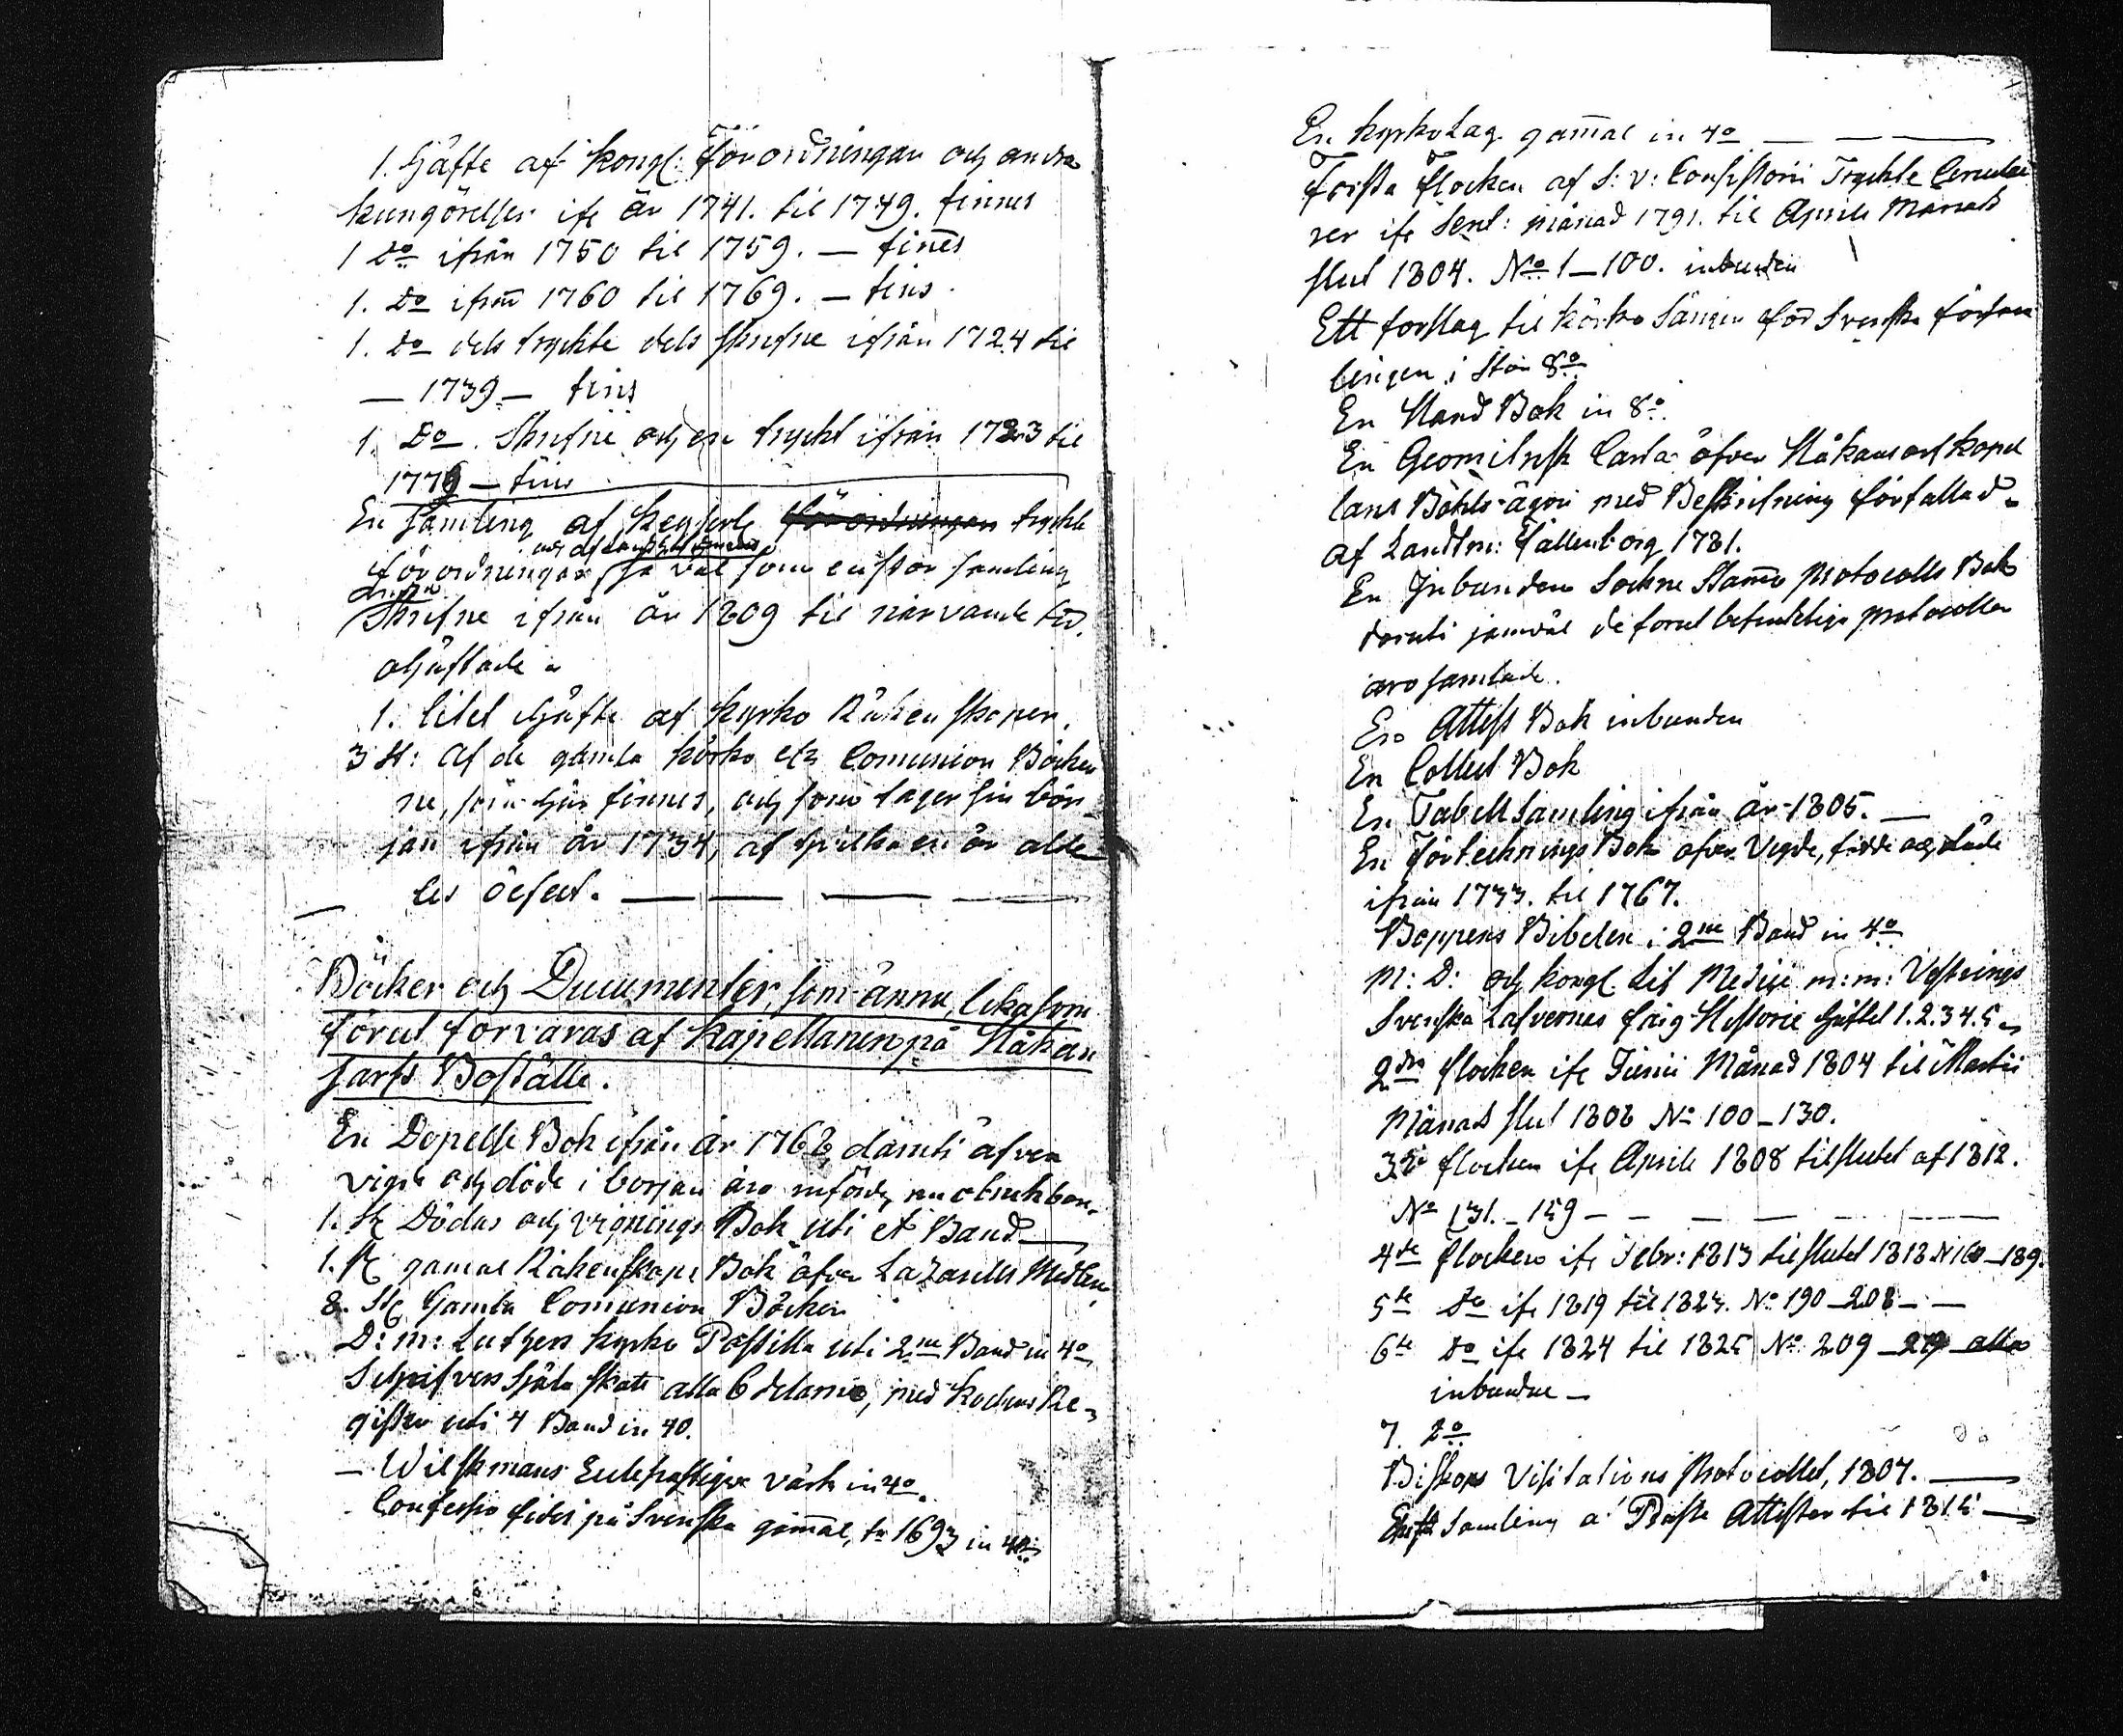 1. Häfte af Kongl: Förordningar och andra
Kungörelser ifr år 1741. til 1749. finnes
1 Do ifrån 1750 til 1759. — fines
1. Do ifrån 1760 til 1769. — fins.
1. Do dels tryckte dels skrifne ifrån 1724 til
— 1739 — fins
1. Do. Skrifne och en tryckt ifrån 1723 til
1779 — fins
En Samling af Keyserle förordningar tryckte
förordningar så väl som en stor samling
Skrifne ifrån år 1809 til närvande tid.
ohäftade
1. litet Häfte af Kyrko Räkenskaper.
3 St: af de gamla Körko etc Comunion Böcker
ne, som här finnes, och som tager sin bör
jan ifrån år 1734, af hvilka en är alde
les defect. — — — —
Böcker och Documenter, som ännu, lika som
förut förvaras af Kapellanen på Håkan
sarfs Boställe.
En Dopelse Bok ifrån år 1768, däruti äfven
vigde och döde i början äro införde, nu obrukbar.
1. St Dödas och vignings Bok uti et Band —
1. St gamal Räkenskaps Bok öfver Lazaretts Medlen
8. St Gamla Comunion Böcker
D: M: Luthers Kyrko Postilla uti 2ne Band in 4o
Schrifvers Själa Skatt alla 6 delarne, med Kochens Re-
gister uti 4 Band in 4o.
— Wilskmans Eclesiastique värk in 4o.
Confessio fidei på Svenska gamal, tr 1693 in 4o
En Kyrko Lag gamal in 4o — — —
Första flocken af S: V: Consistorii Tryckte Circulai
rer ifr Sept: månad 1791. til Aprils Månads
slut 1804. No 1—100. inbunden
Ett förslag til Körko Sången för Svenska försam
lingen i stor 8o
En Hand Bok in 8o.
En Geometrisk Carta öfver Håkansarf Kapel
lans Bohls-ägor med Beskrifning författad
af Landtm: Fällenborg 1781.
En Inbunden Sockne Stamo Protocolls Bok
däruti jämväl de förut befintelige protocoller
äro samlade.
En Attest Bok inbunden
En Collect Bok
En Tabell Samling ifrån år 1805. —
En Förtecknings Bok öfver Vigde, födde och döde
ifrån 1733. til 1767.
Beppens Bibelen i 2ne Band in 4o
M: D: och Kongl. Lif Medici m: m: Vestrings
Svenska Lafvernes färg-Historie Häftet 1. 2. 3 4. 5
2dra flocken ifr Junii Månad 1804 til Martii
Månads slut 1808 No 100—130.
3de flocken ifr Aprils 1808 til slutet af 1812.
No 131. — 159 — — — — — —
4de flocken ifr Febr: 1813 til slutet 1818 N 160—189.
5te Do ifr 1819 til 1823. No 190—208 — —
6te Do ifr 1824 til 1825 No 209 — alla
inbundne —
7. Do
Biskops Visitations Protocollet, 1807. —
Samling a Präste Attester til 1815 —